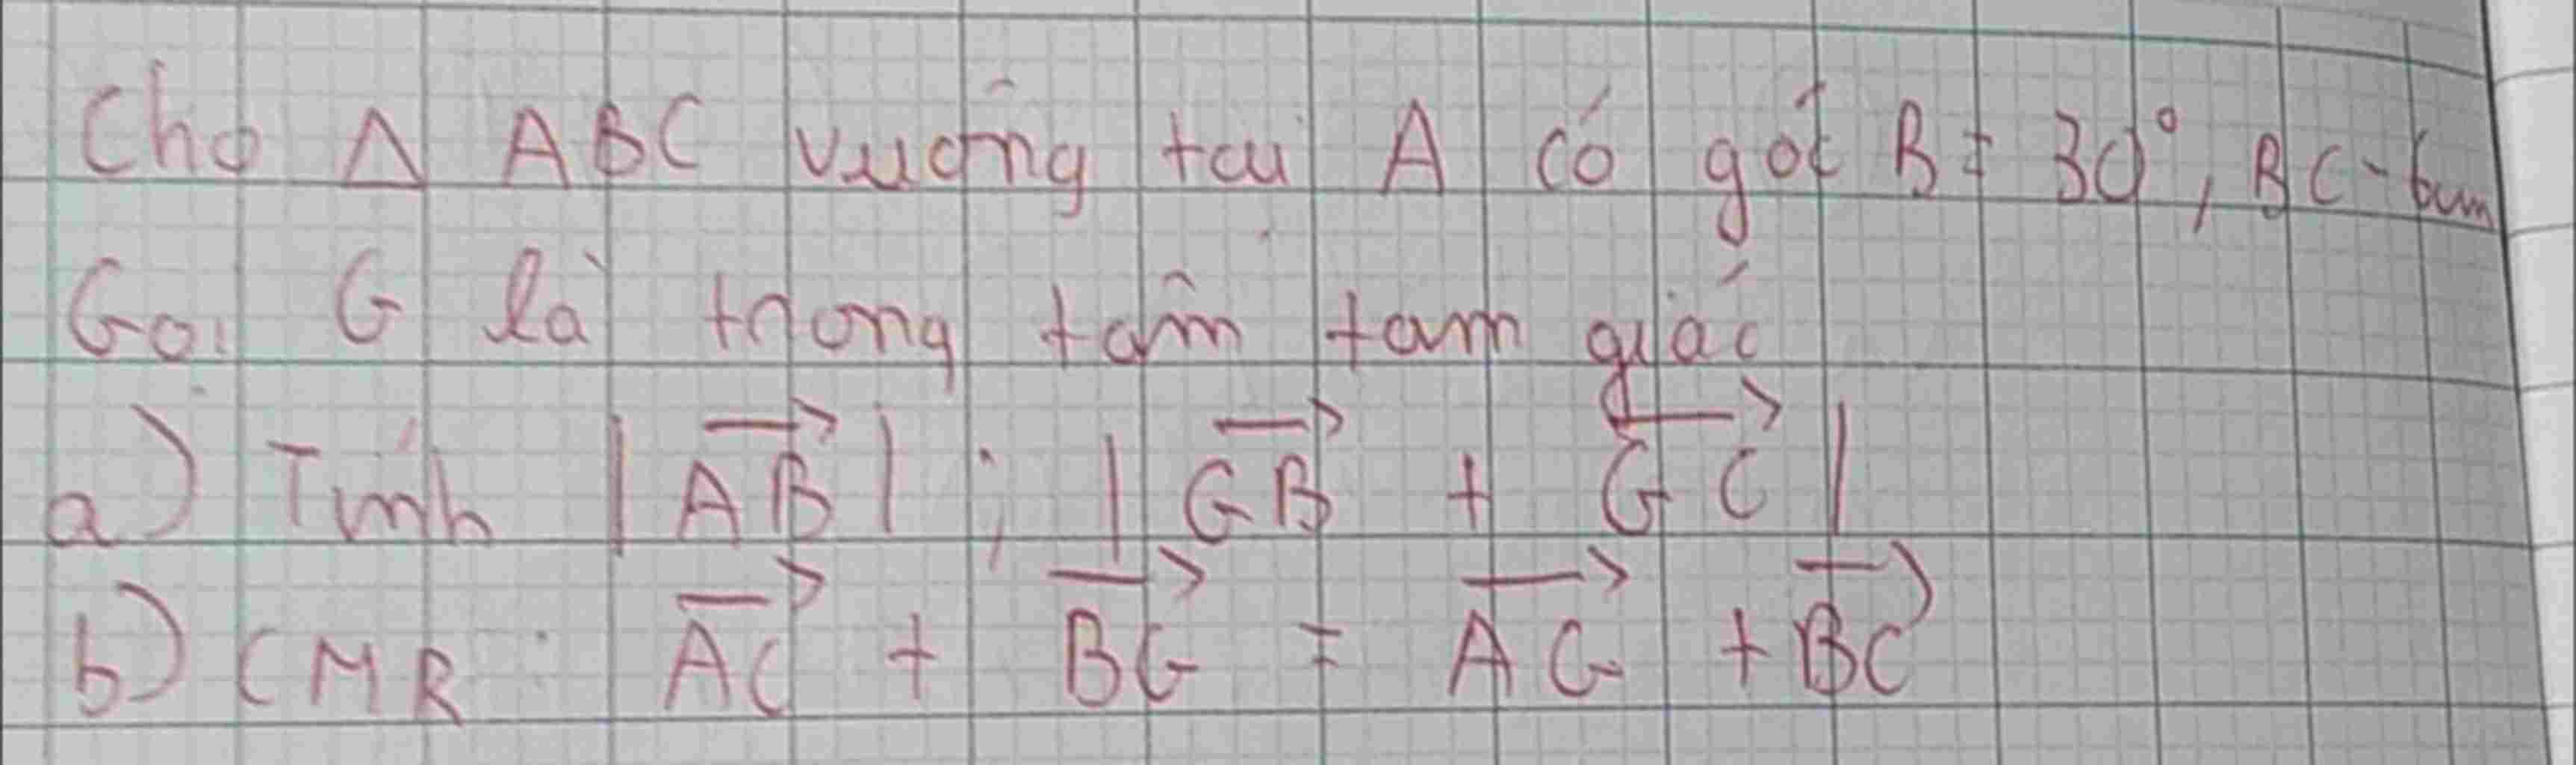 Cho Δ ABC vuông tại A có góc B = 30°, BC = 6cm
Gọi G là trọng tâm tam giác
a) Tính |$\overrightarrow{AB}$| ; |$\overrightarrow{GB}$ + $\overrightarrow{GC}$|
b) CMR : $\overrightarrow{AC}$ + $\overrightarrow{BG}$ = $\overrightarrow{AG}$ + $\overrightarrow{BC}$